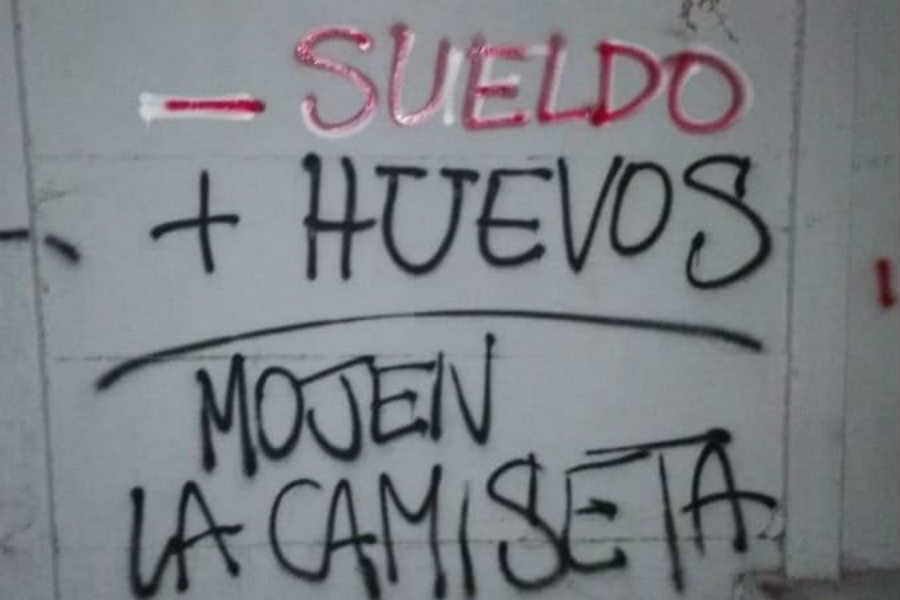 - SUELDO
+ HUEVOS
MOJEN
LA CAMISETA